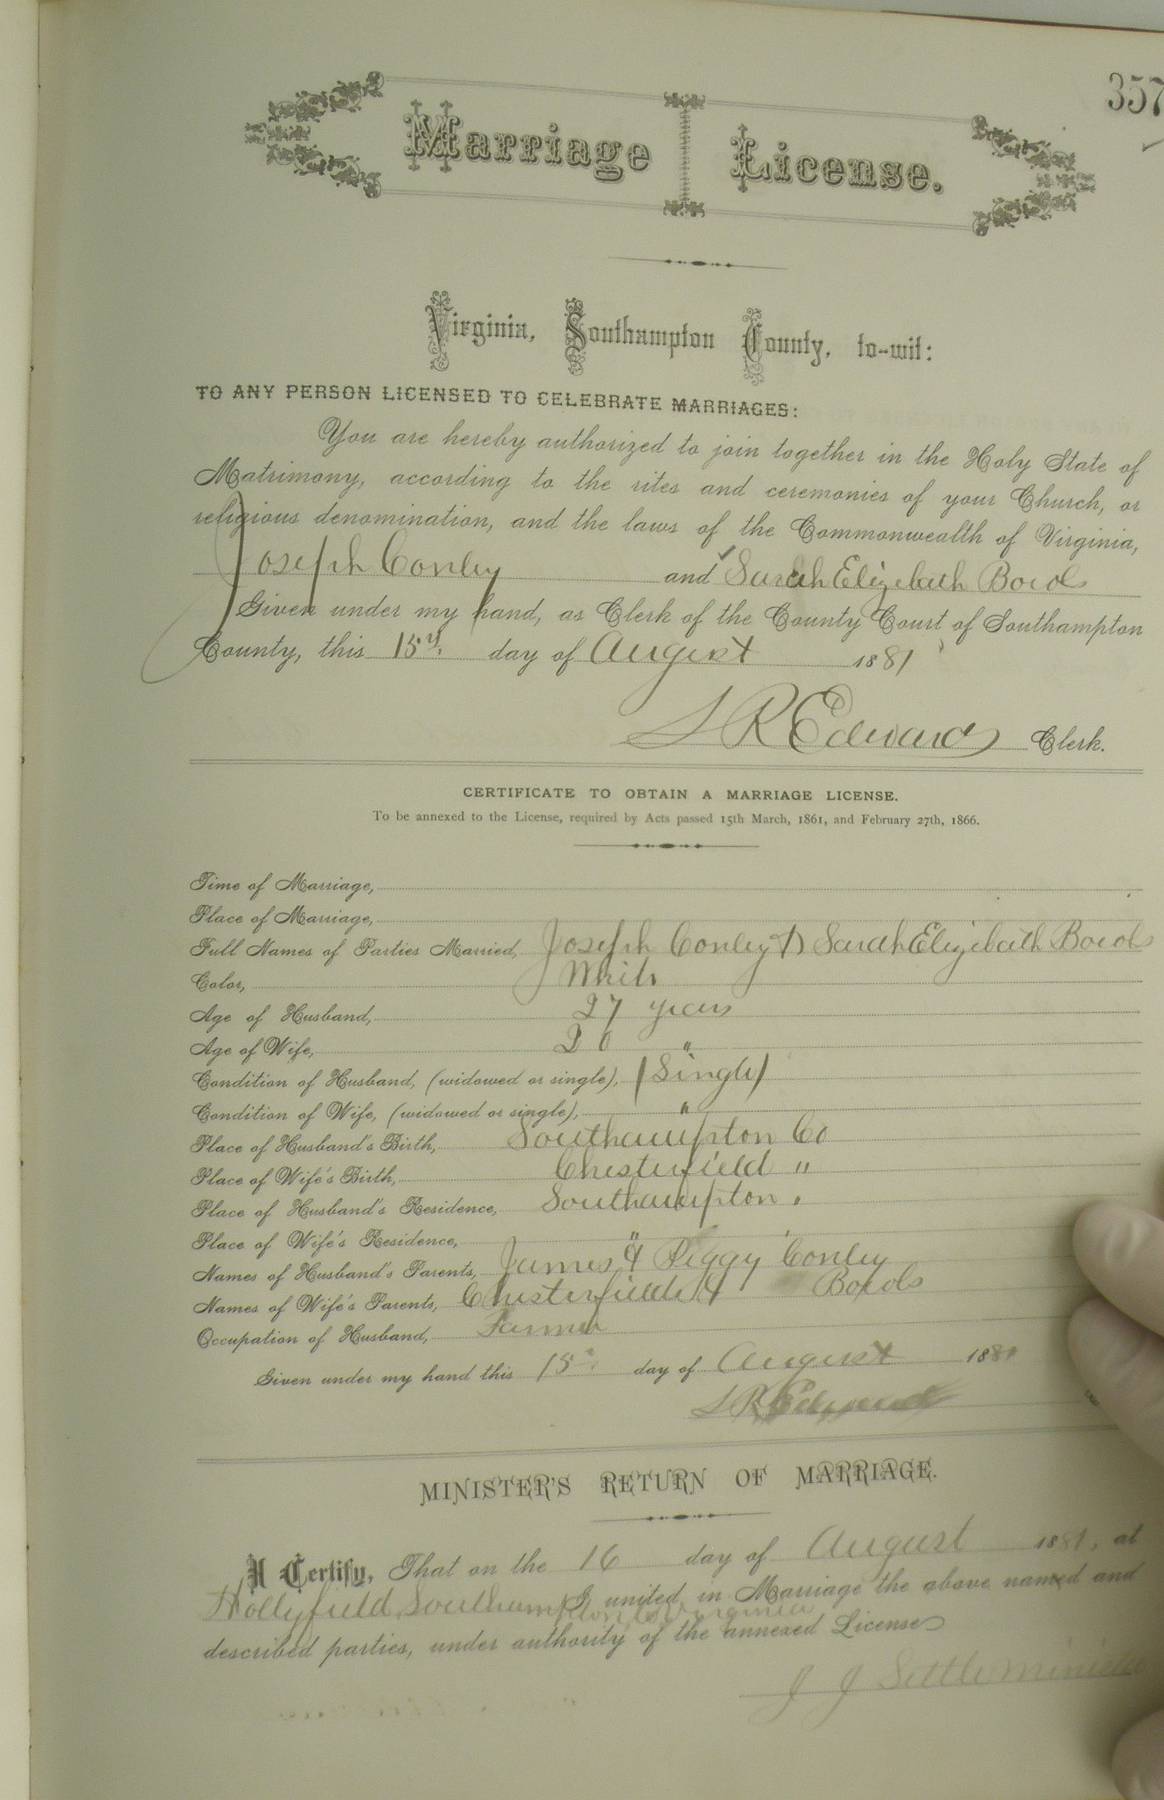 357
Marriage License.
Virginia, Southampton County, to-wit:
TO ANY PERSON LICENSED TO CELEBRATE MARRIAGES:
You are hereby authorized to join together in the Holy State of
Matrimony, according to the rites and ceremonies of your Church, or
religious denomination, and the laws of the Commonwealth of Virginia,
Joseph Conley and Sarah Elizebath
Given under my hand, as Clerk of the County Court of Southampton
County, this 15th day of August 1881
L R Edwards Clerk.
CERTIFICATE TO OBTAIN A MARRIAGE LICENSE.
To be annexed to the License, required by Acts passed 15th March, 1861, and February 27th, 1866.
Time of Marriage,
Place of Marriage,
Full Names of Parties Married, Joseph Conley & Sarah Elizebath
Color, White
Age of Husband, 27 years
Age of Wife, 20 "
Condition of Husband, (widowed or single), (Single)
Condition of Wife, (widowed or single), "
Place of Husband's Birth, Southampton Co
Place of Wife's Birth, Chesterfield "
Place of Husband's Residence, Southampton "
Place of Wife's Residence, " "
Names of Husband's Parents, James & Peggy Conley
Names of Wife's Parents, Chesterfield &
Occupation of Husband, Farmer
Given under my hand this 15th day of August 1881
L R Edwards
MINISTER'S RETURN OF MARRIAGE.
I Certify, That on the 16 day of August 1881, at
Hollyfield, Southampton Co Virginia I united in Marriage the above named and
described parties, under authority of the annexed License
J J Settle Minister